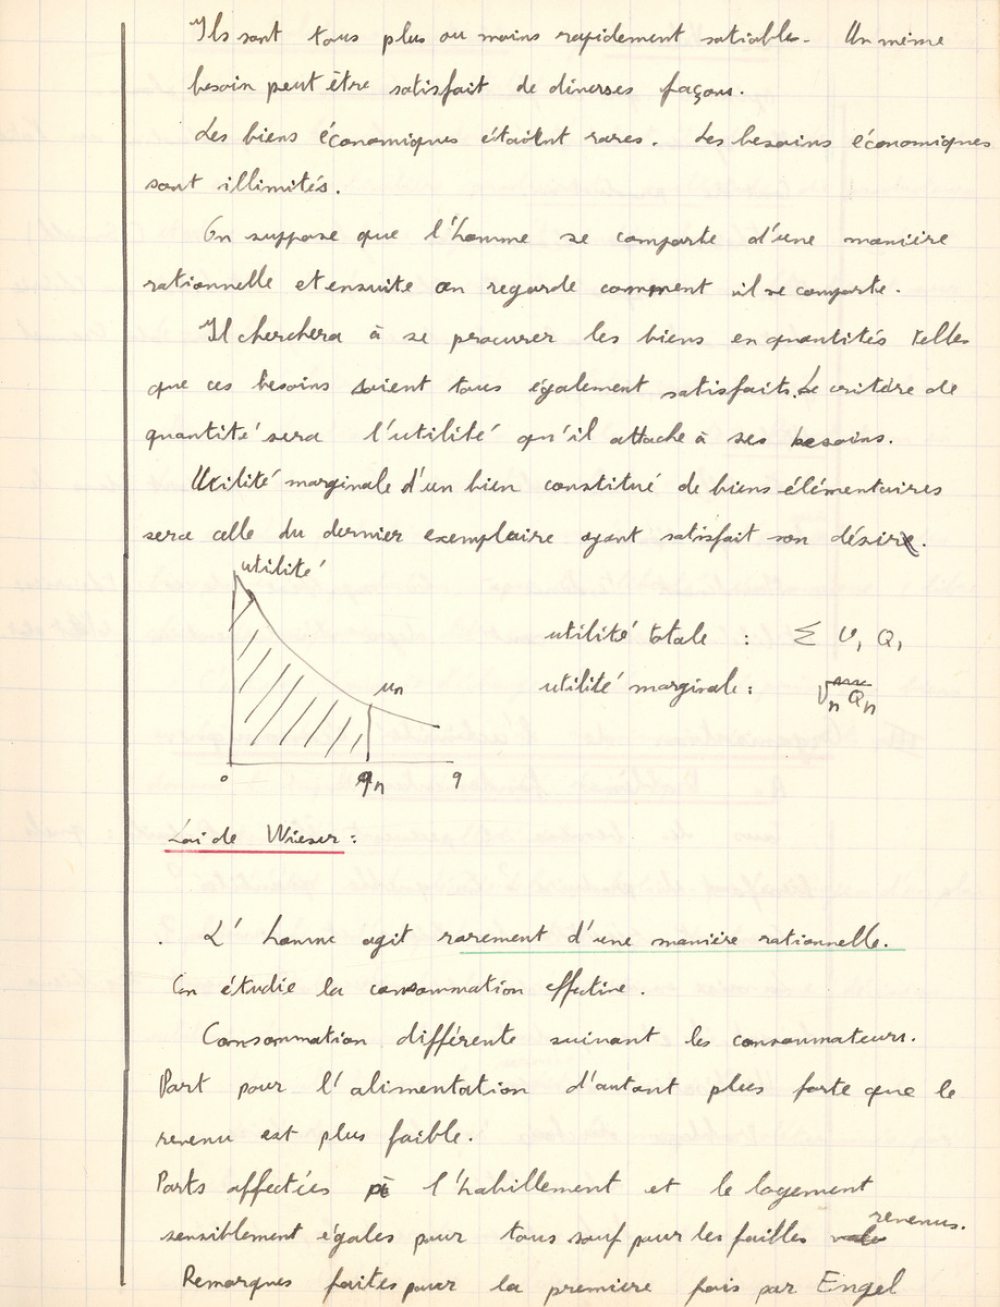 Ils sont tous plus ou moins rapidement satiables. Un même
besoin peut être satisfait de diverses façons.
Les biens économiques étaient rares. Les besoins économiques
sont illimités.
On suppose que l'homme se comporte d'une manière
rationnelle et ensuite on regarde comment il se comporte.
Il cherchera à se procurer les biens en quantités telles
que ces besoins soient tous également satisfaits. Le critère de
quantité sera l'utilité qu'il attache à ses besoins.
Utilité marginale d'un bien constitué de biens élémentaires
sera celle du dernier exemplaire ayant satisfait son désir.
utilité
utilité totale : Σ U₁ Q₁
un
utilité marginale : Un Qn
o qn q
Loi de Wieser :
. L'homme agit rarement d'une manière rationnelle.
On étudie la consommation effective.
Consommation différente suivant les consommateurs.
Part pour l'alimentation d'autant plus forte que le
revenu est plus faible.
Parts affectées à l'habillement et le logement
sensiblement égales pour tous sauf pour les faibles revenus.
Remarques faites pour la premiere fois par Engel